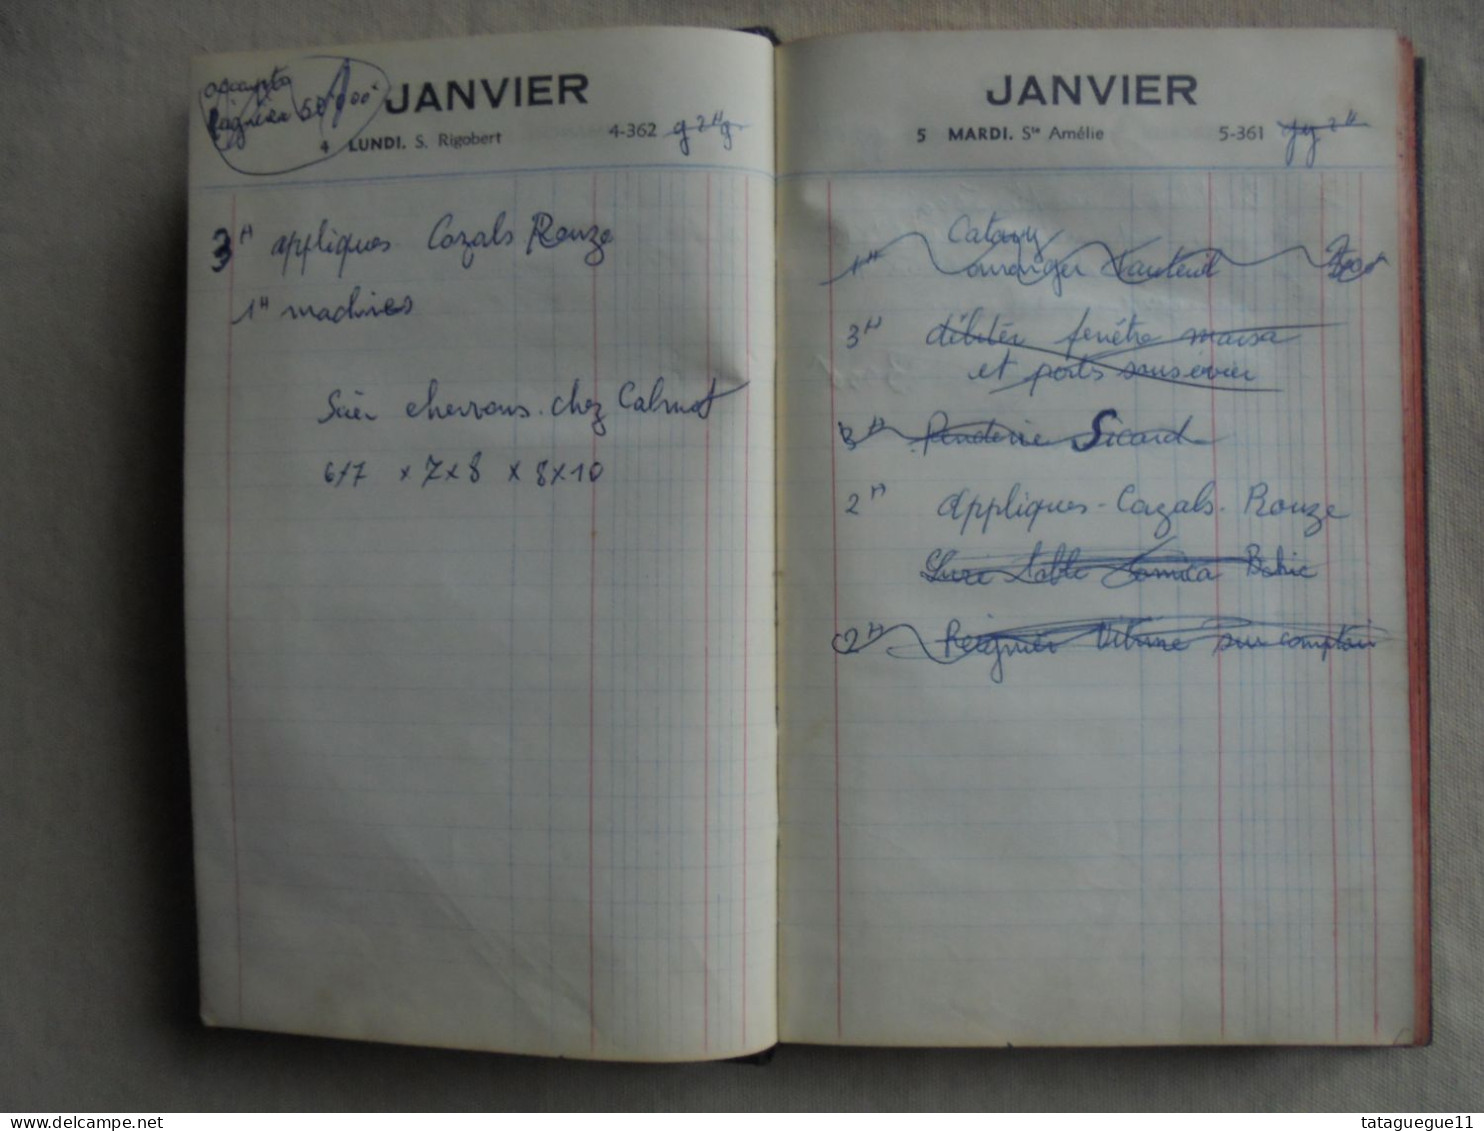 accepta
50 000
JANVIER
4 LUNDI. S. Rigobert 4-362
3H appliques Cazals Rouze
1H machines
Scier chevrons chez Calmet
6x7 x 7x8 x 8x10
JANVIER
5 MARDI. Ste Amélie 5-361
Catany
1H arranger fauteuil
3H débiter fenêtre
et porte sous évier
3H Penderie Sicard
2H appliques - Cazals - Rouze
table formica
2H Reignier Vitrine sur comptoir
delcampe.net
tatague11